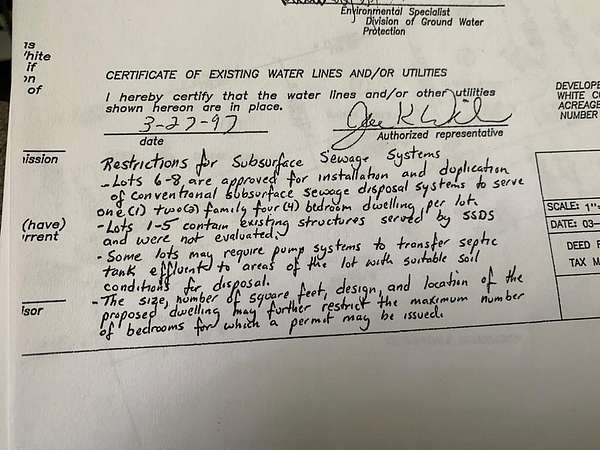 Environmental Specialist
Division of Ground Water
Protection
is
hite
if
on
of
CERTIFICATE OF EXISTING WATER LINES AND/OR UTILITIES
I hereby certify that the water lines and/or other utilities
shown hereon are in place.
3-27-97
date
Authorized representative
DEVELOPE
WHITE CO
ACREAGE
NUMBER
ission
(have)
rrent
isor
Restrictions for Subsurface Sewage Systems
- Lots 6-8 are approved for installation and duplication
of conventional subsurface sewage disposal systems to serve
one (1) two(2) family four (4) bedroom dwelling per lot.
- Lots 1-5 contain existing structures served by SSDS
and were not evaluated.
- Some lots may require pump systems to transfer septic
tank effluent to areas of the lot with suitable soil
conditions for disposal.
- The size, number of square feet, design, and location of the
proposed dwelling may further restrict the maximum number
of bedrooms for which a permit may be issued.
SCALE: 1"
DATE: 03-
DEED
TAX M